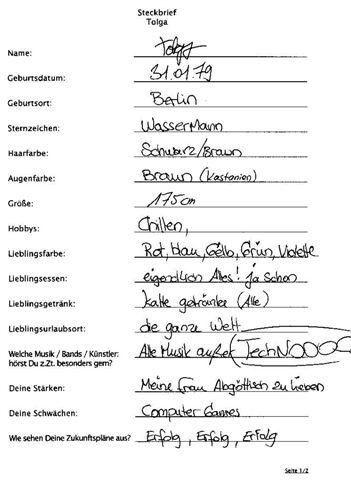 Steckbrief
Tolga
Name: Tolga
Geburtsdatum: 31.01.79
Geburtsort: Berlin
Sternzeichen: WasserMann
Haarfarbe: Schwarz/Braun
Augenfarbe: Braun (Kastanien)
Größe: 175cm
Hobbys: Chillen,
Lieblingsfarbe: Rot, blau, Gelb, Grün, Violette
Lieblingsessen: eigendlich Alles! ja Schon
Lieblingsgetränk: kalte getränke (Alle)
Lieblingsurlaubsort: die ganze Welt
Welche Musik / Bands / Künstler: Alle Musik außer TechNOOOO
hörst Du z.Zt. besonders gern?
Deine Stärken: Meine frau Abgöttisch zu lieben
Deine Schwächen: Computer Games
Wie sehen Deine Zukunftspläne aus? Erfolg, Erfolg, Erfolg
Seite 1/2